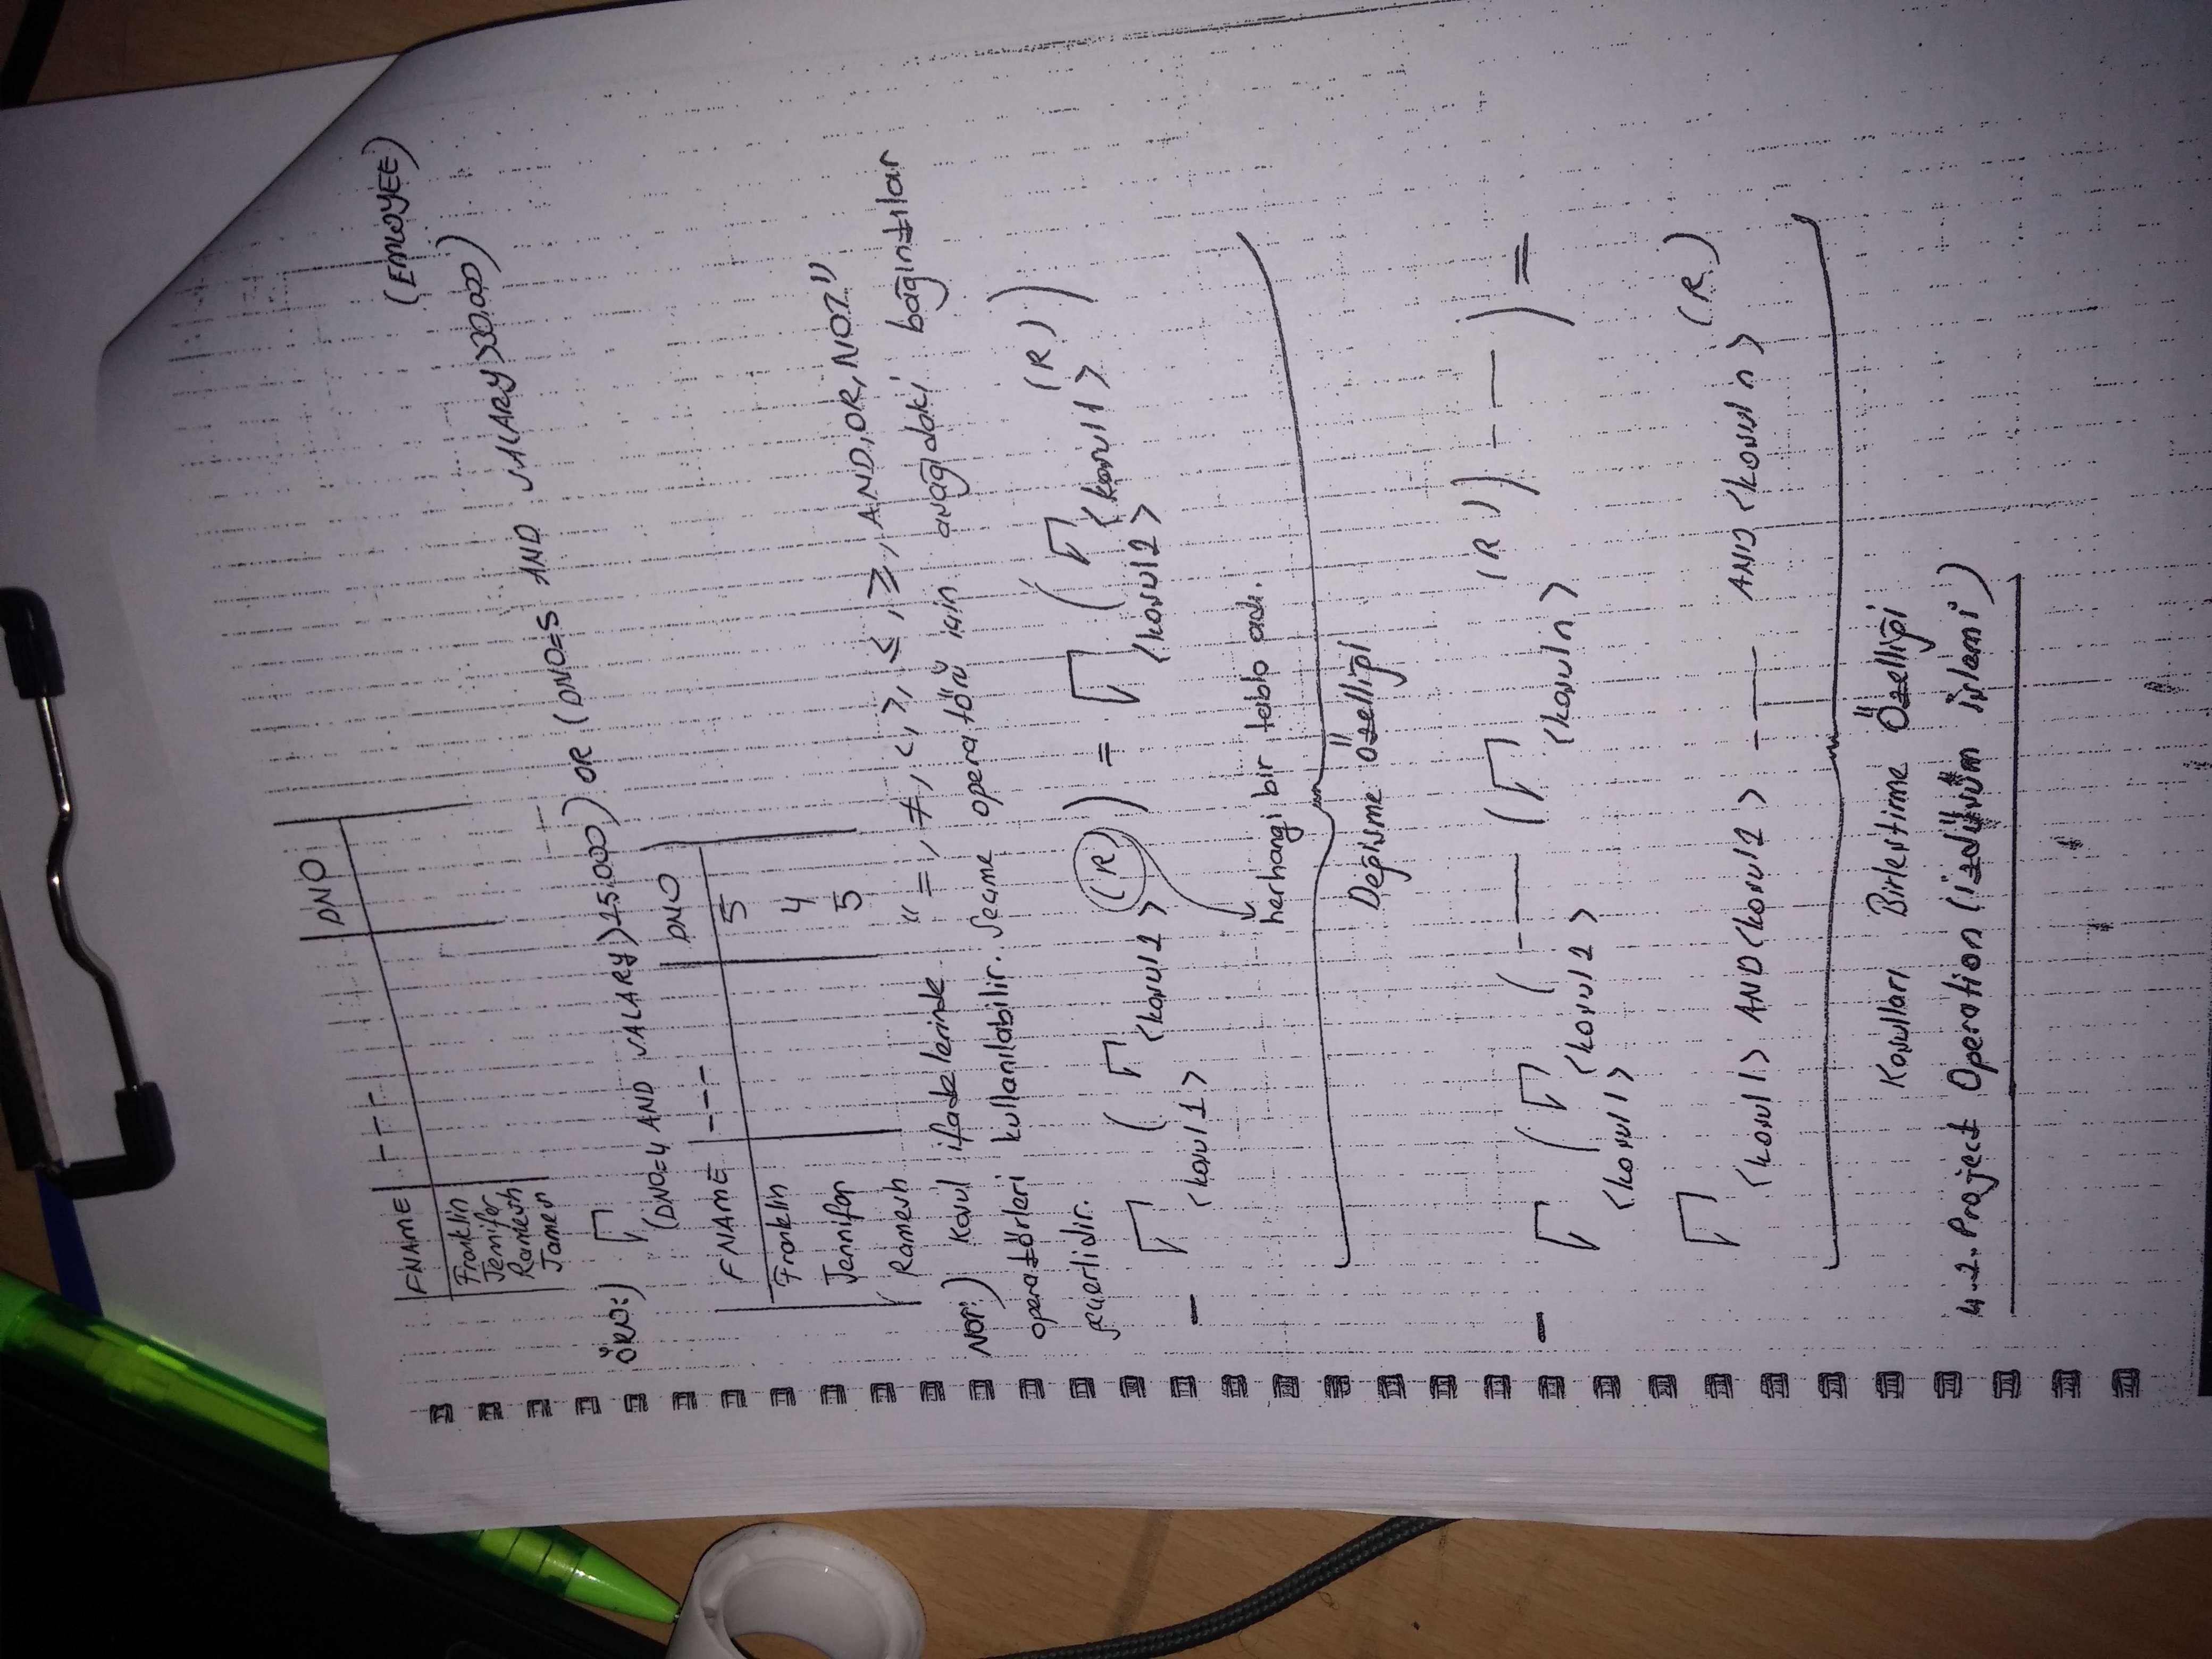 FNAME --- DNO
Franklin
Jennifer
Ramesh
James
ÖRN:) σ (DNO=4 AND SALARY>25.000) OR (DNO=5 AND SALARY>30.000) (EMLOYEE)
FNAME --- DNO
Franklin 5
Jennifer 4
Ramesh 5
NOT:) Koşul ifadelerinde "=, ≠, <, >, ≤, ≥, AND, OR, NOT"
operatörleri kullanılabilir. Seçme operatörü için aşağıdaki bağıntılar
geçerlidir.
- σ <koşul1> ( σ <koşul2> (R) ) = σ <koşul2> ( σ <koşul1> (R) )
herhangi bir tablo adı.
Değişme özelliği
- σ <koşul1> ( σ <koşul2> ( --- ( σ <koşuln> (R) ) --- ) =
σ <koşul1> AND <koşul2> --- AND <koşuln> (R)
Koşulları Birleştirme Özelliği
4.2. Project Operation (izdüşüm işlemi)